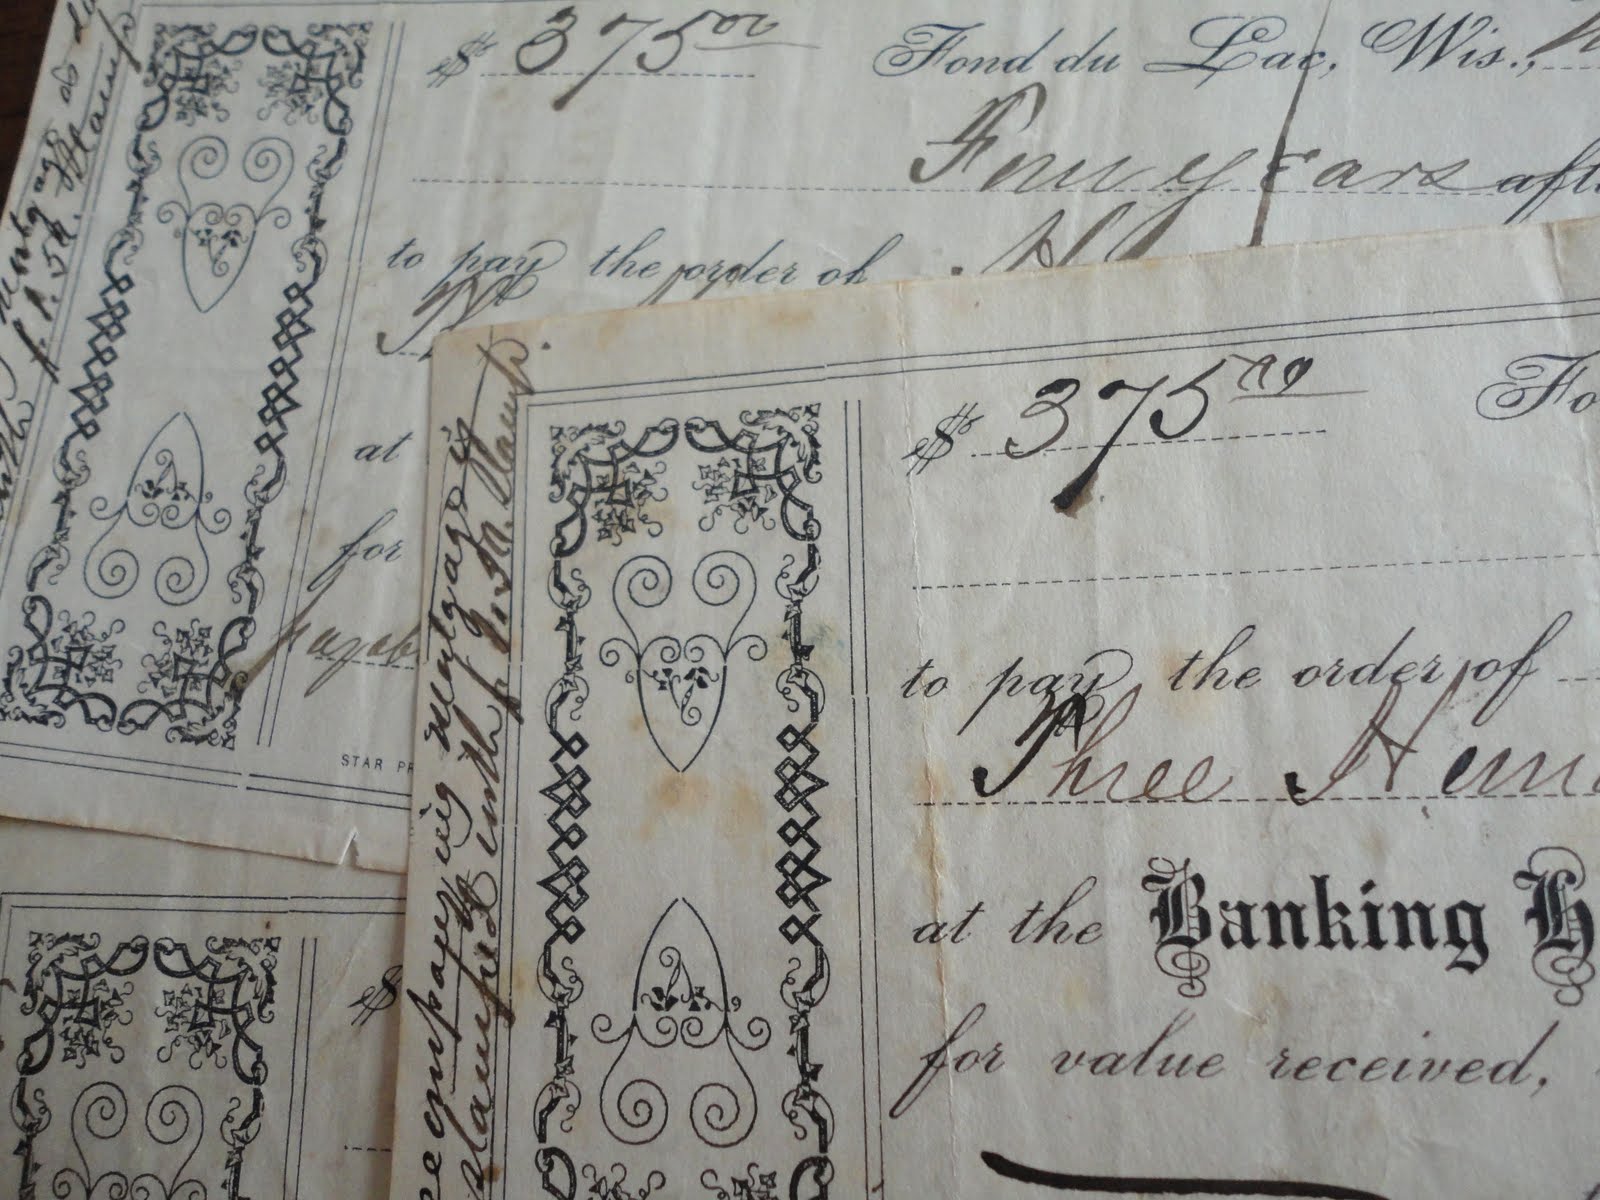 $ 375 00 Fond du Lac, Wis.,
Four years aft
to pay the order of
at
for
payab
STAR PR
mortgage
$ 375 00 Fo
to pay the order of
Three Hun
at the Banking H
for value received,
accompanying mortgage is
stamped with
$